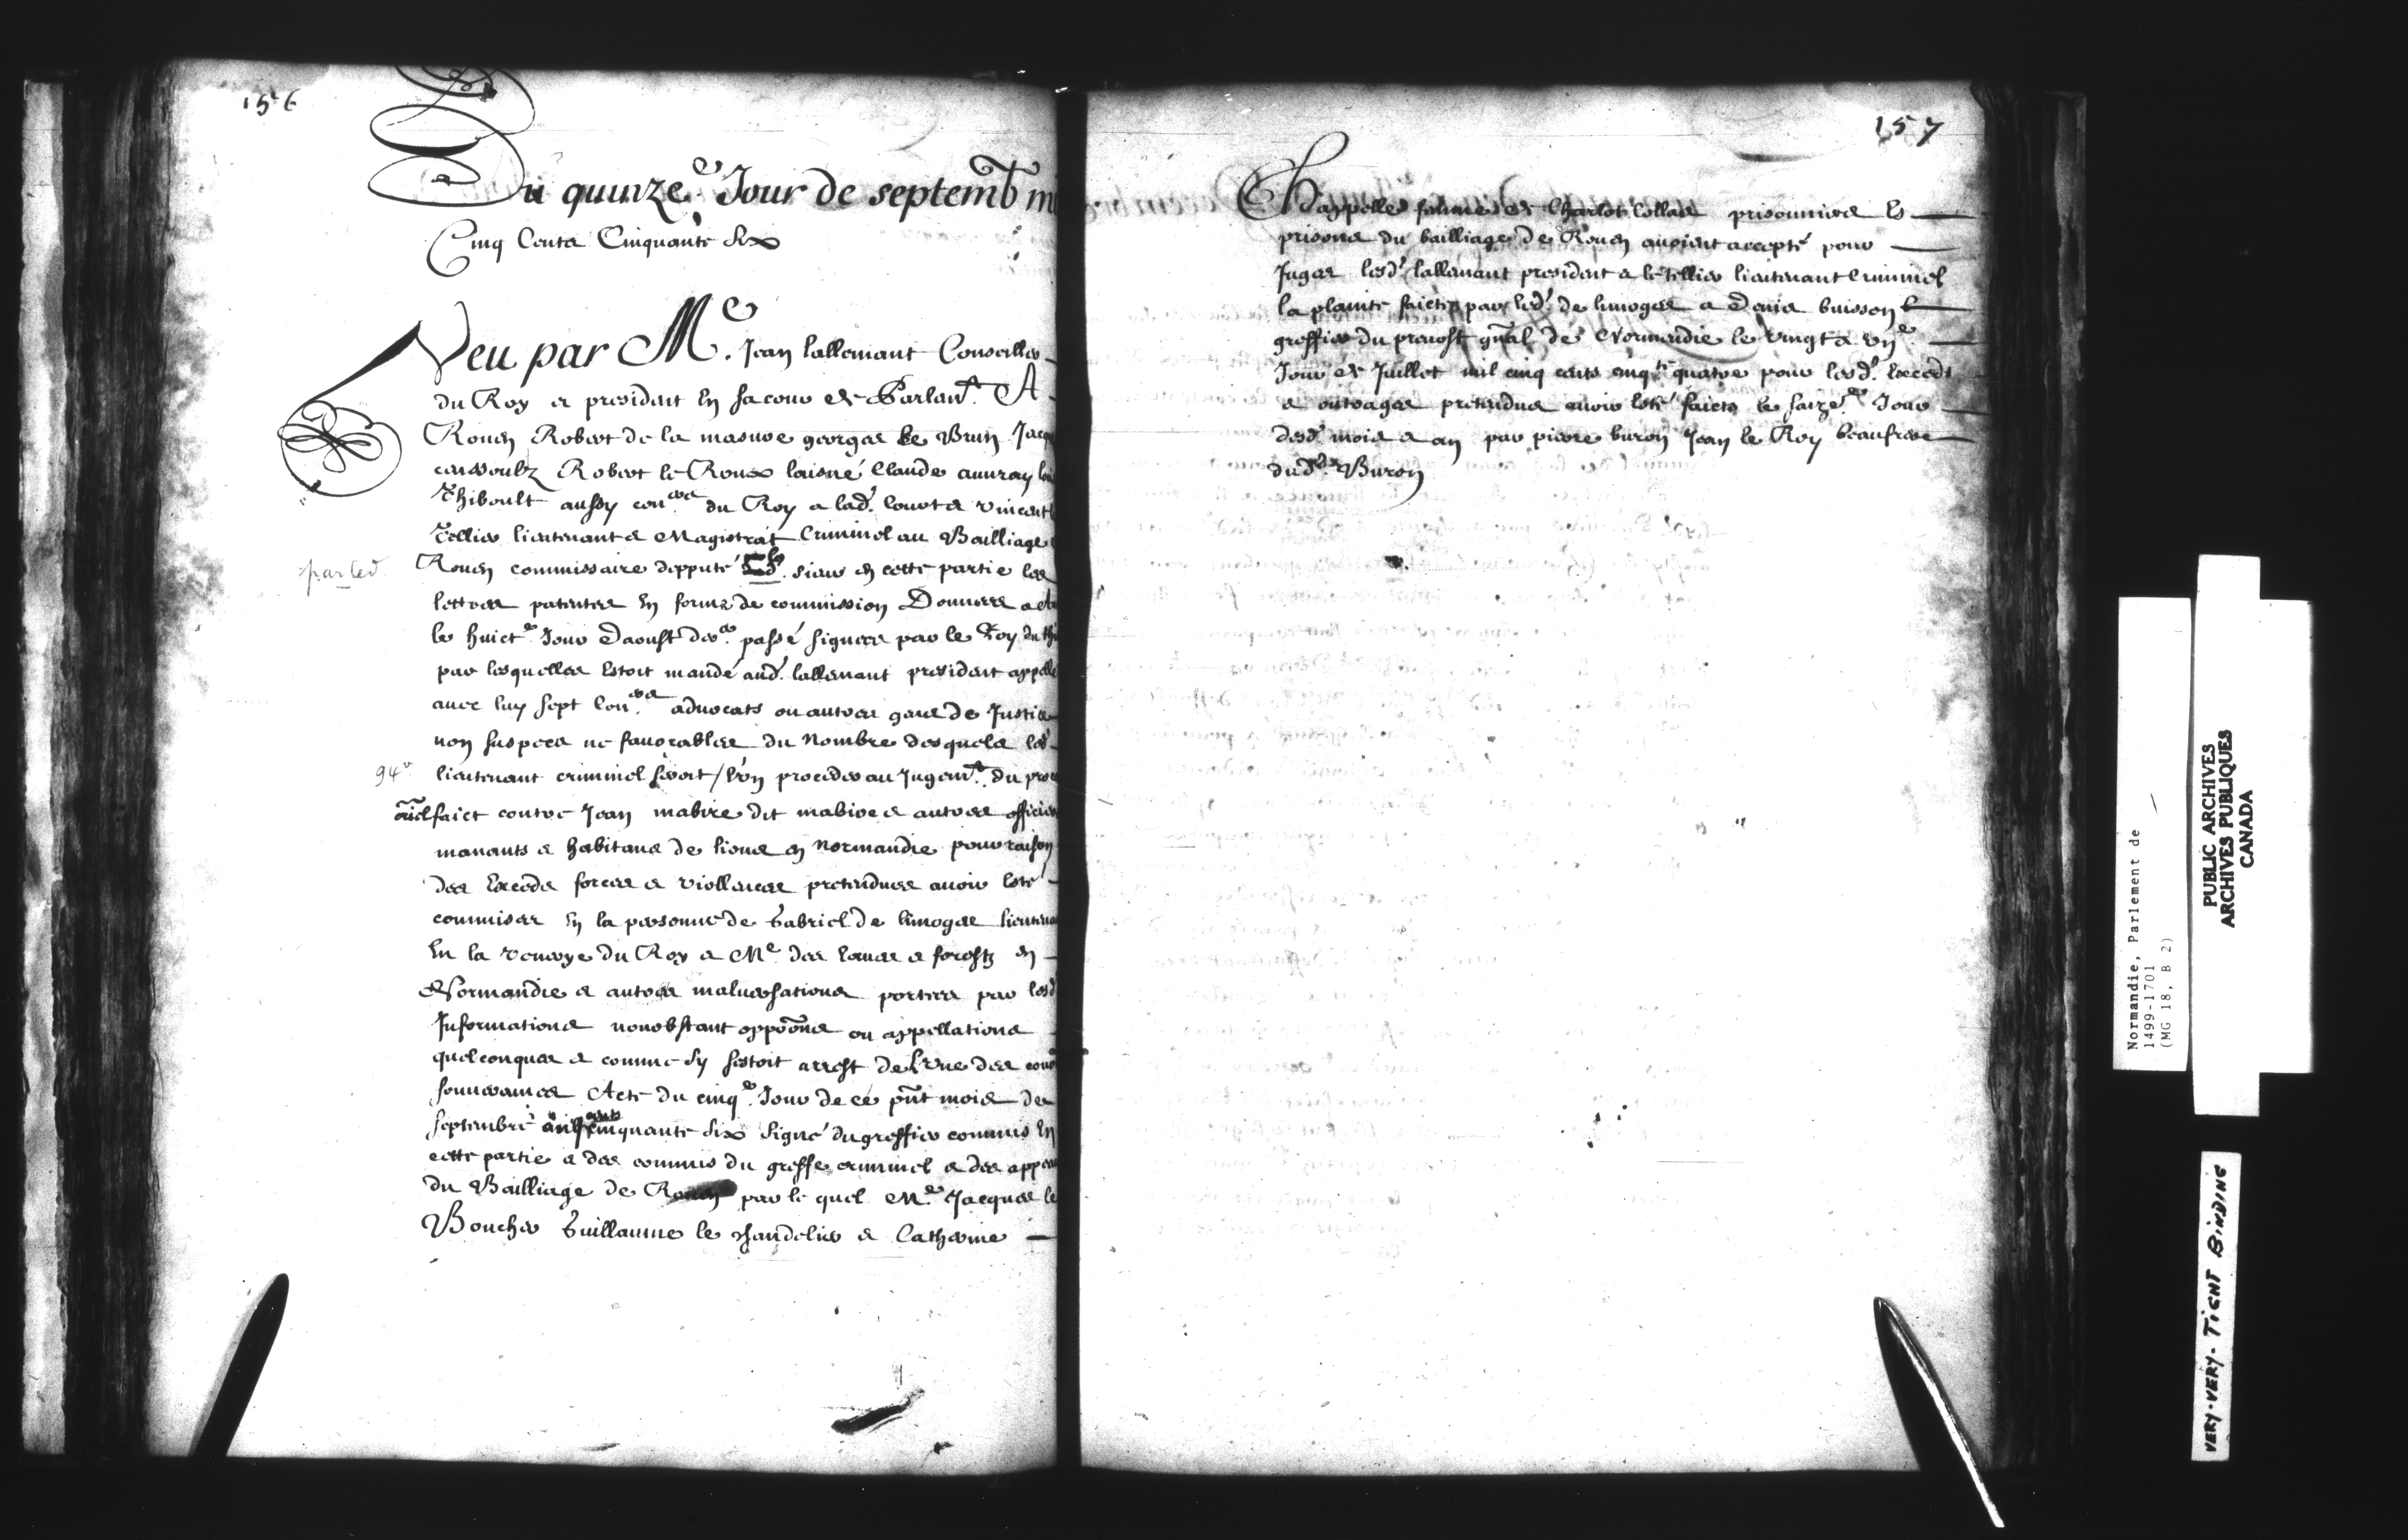 156
Du quinze.e Jour de septemb m
Cinq Cents Cinquante Six
Veu par Me. Jean lallemant Conseiller
du Roy et president en sa cour de Parlamt. A
Rouen Robert de la masure georges le Brun Jacq
Robert le Roux laisné Claude auuray
Thibault aussy coners du Roy a lad. court et vincent
Tellier lieutenant et Magistrat Criminel au Bailliage
par led
Rouen commissaire depputé sieur en cette partie les
lettres patentes en forme de commission Donnees a
le huicte Jour daoust der. passé signees par le Roy
par lesquelles estoit mandé aud. lallemant president appelle
auec luy sept Coners aduocats ou autres gens de Justice
non suspects ne fauorables du Nombre desquels led
94v
lieutenant criminel seroit / l'un proceder au Jugemt. du pro
criel faict contre Jean mabire dit mabire et autres officie
manants et habitans de lions en Normandie pour raison
des excedz forces et viollences pretendues auoir esté
commises en la personne de Gabriel de limoges lieutena
En la du Roy et Me des eaues et forestz en
Normandie et autres maluersations portees par lesd
Informations nonobstant oppoons ou appellations
quelconques et comme sy sestoit arrest de l'vne des cours
souueraines Acte du cinq.e Jour de ce pnt mois de
septembre cinquante six signé du greffier commis en
cette partie et des commis du greffe criminel et des appea
du Bailliage de Rouen par le quel Me. Jacques le
Boucher Guillaume le chandelier et Catherine
157
Chappelle femme de Charlot Collas prisonniers es
prisons du bailliage de Rouen auoient accepté pour
Juges lesd. lallemant president et le tellier lieutenant Criminel
la plainte faicte par led. de limoges a Denis buisson
greffier du preuost gnal de Normandie le vingt et vne
Jour de Juillet mil cinq cents cinqte quatre pour lesd. excedz
et outrages pretendus auoir esté faicts le saize.e Jour
desd. mois et an par pierre buron Jean le Roy beaufrere
dud. Buron
Normandie, Parlement de
1499-1701
(MG 18, B 2)
PUBLIC ARCHIVES
ARCHIVES PUBLIQUES
CANADA
VERY-VERY-TIGHT BINDING